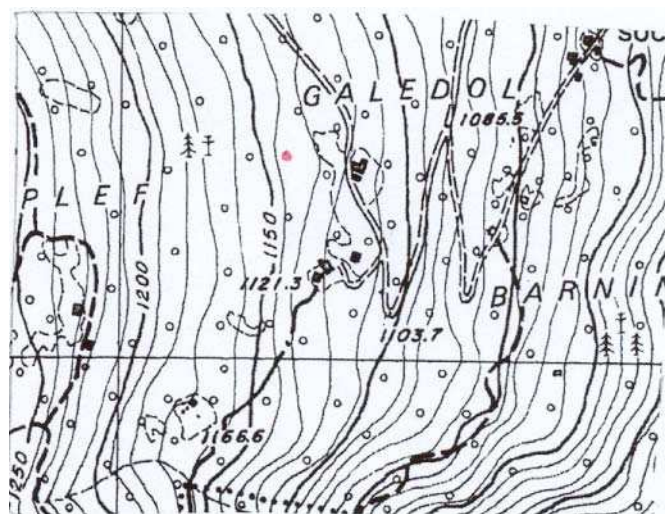 GALEDOL
1085.5
PLEF
1150
1200
1121.3
BARNI
1103.7
1166.6
1250